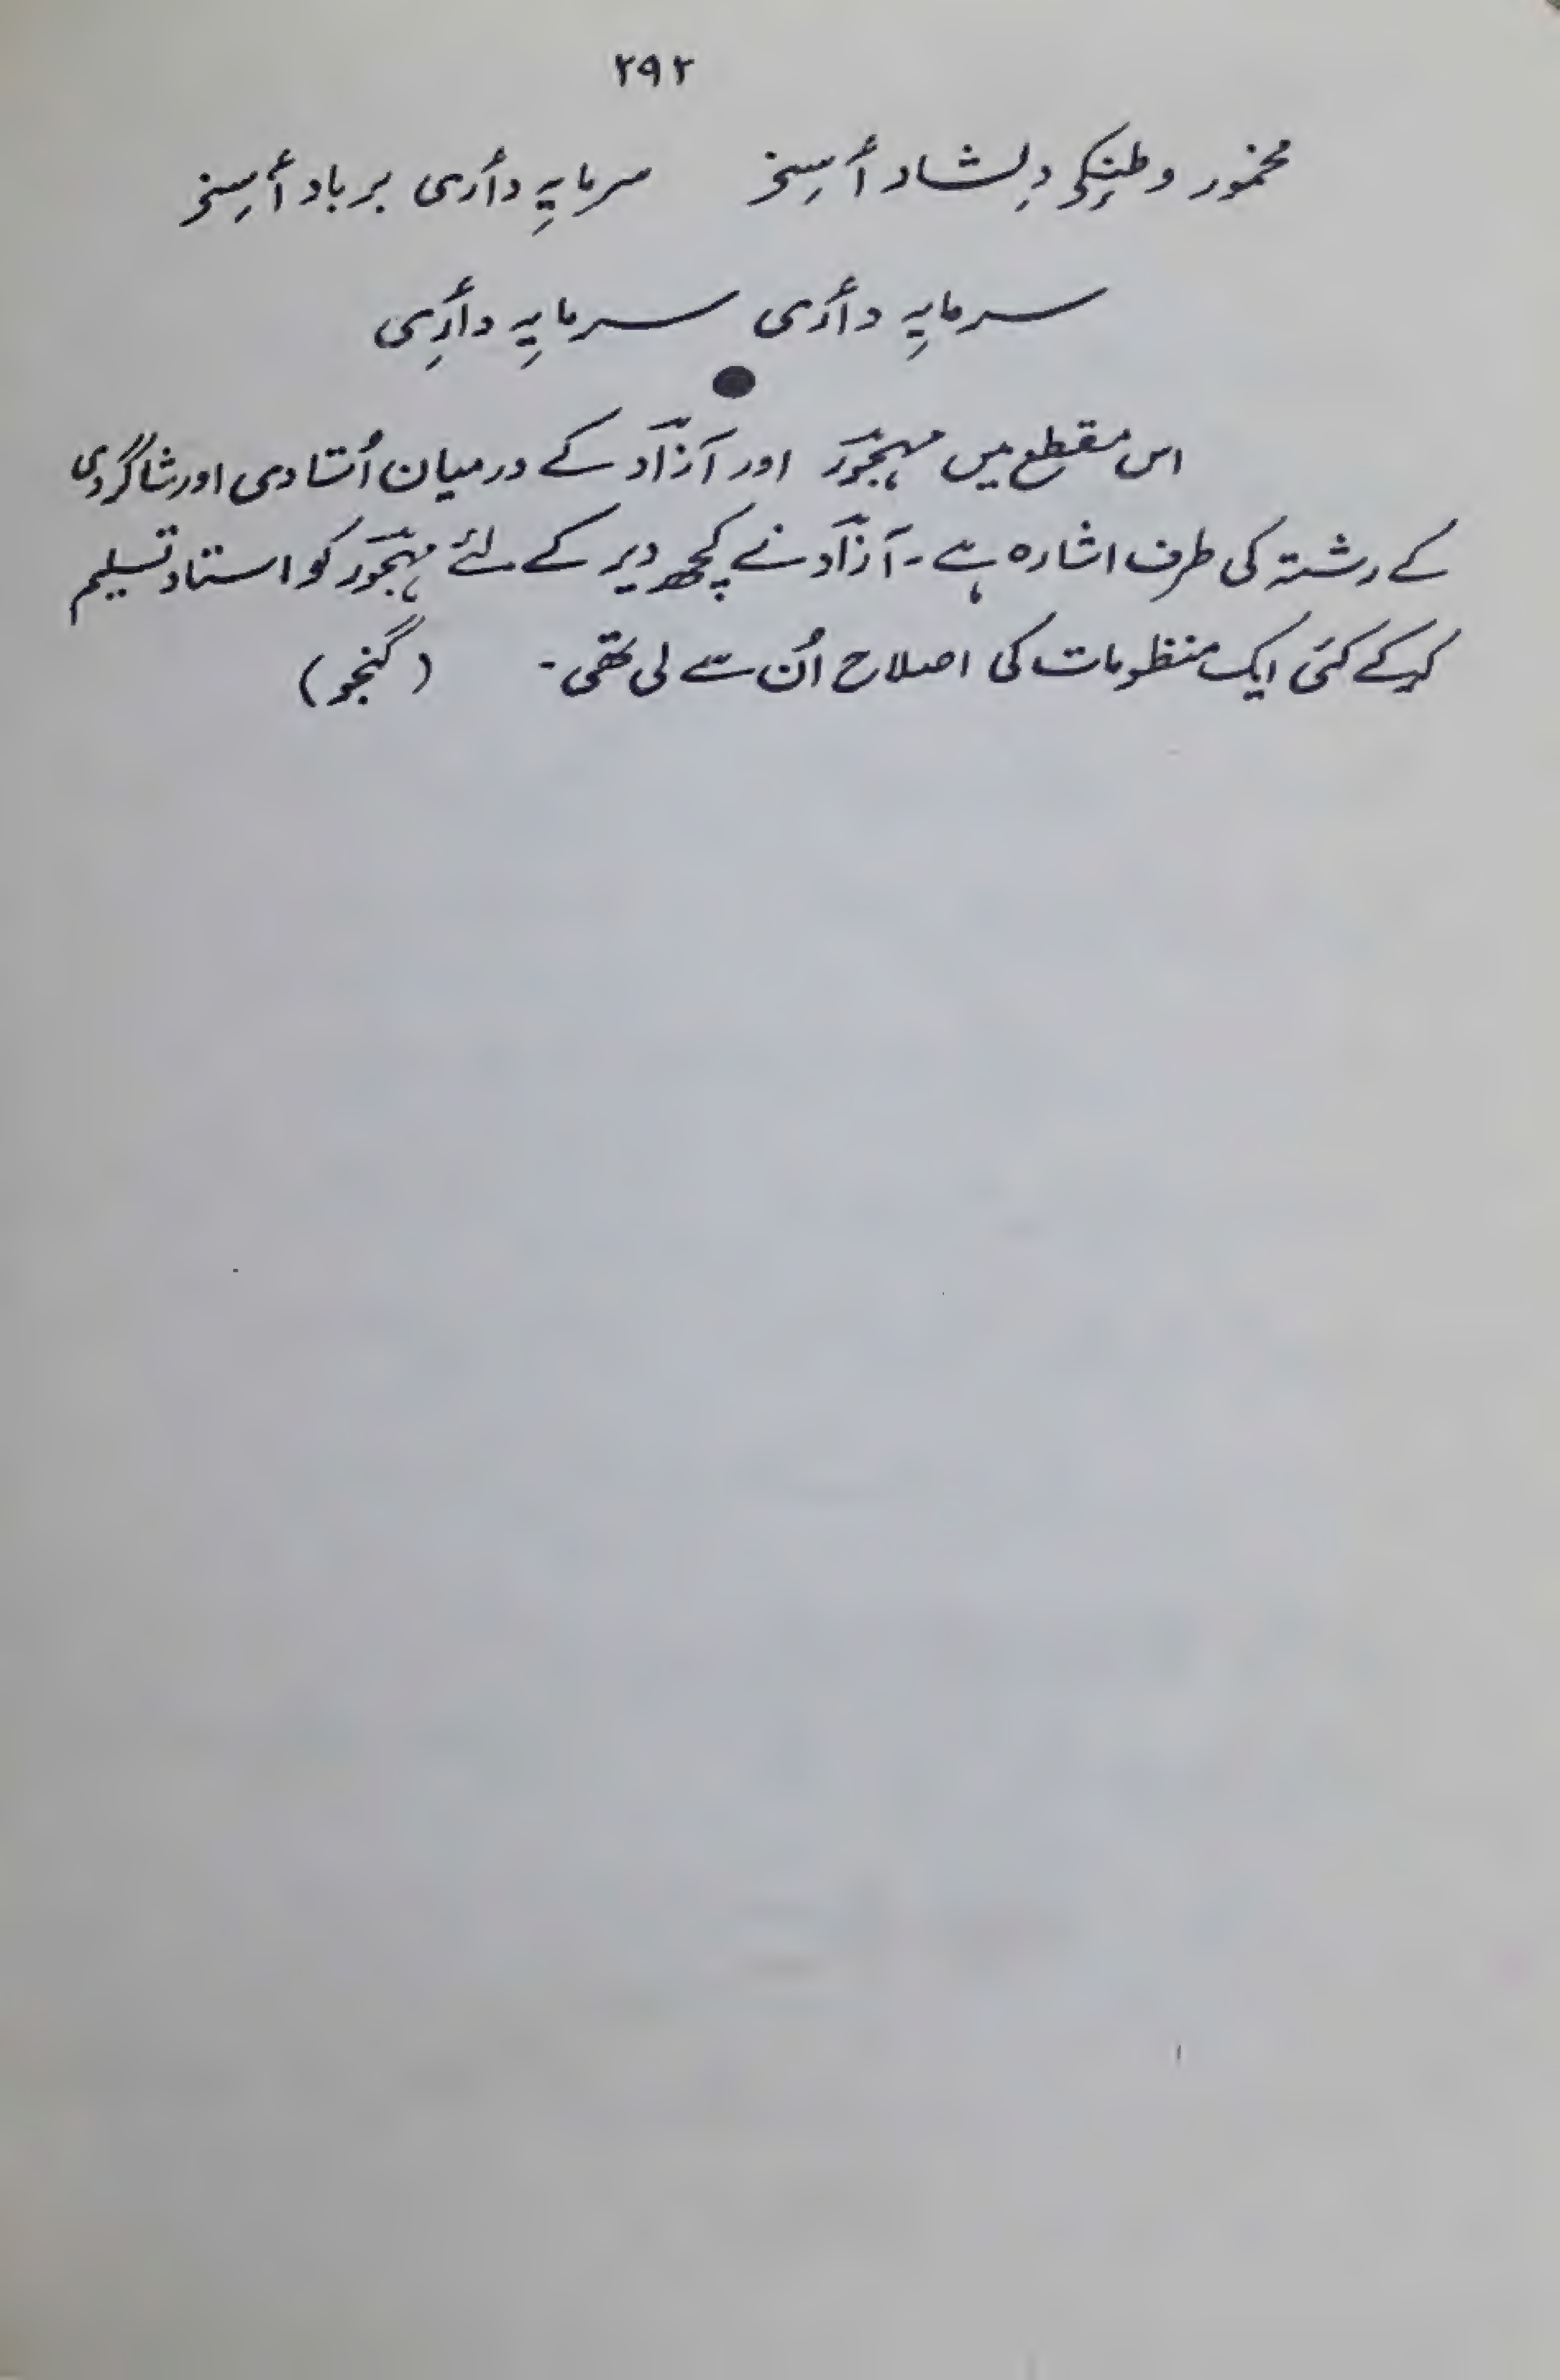 ۲۹۲
مخمور وطنٕکۍ دِلشاد أسِنۍ سرمایہِ دأری برباد أسِنۍ
سرمایہِ دأری سرمایہِ دأرِی
اس مقطع میں مہجورؔ اور آزادؔ کے درمیان اُستادی اور شاگردی
کے رشتہ کی طرف اشارہ ہے۔ آزادؔ نے کچھ دیر کے لئے مہجورؔ کو استاد تسلیم
کرکے کئی ایک منظومات کی اصلاح اُن سے لی تھی۔ (گنجو)